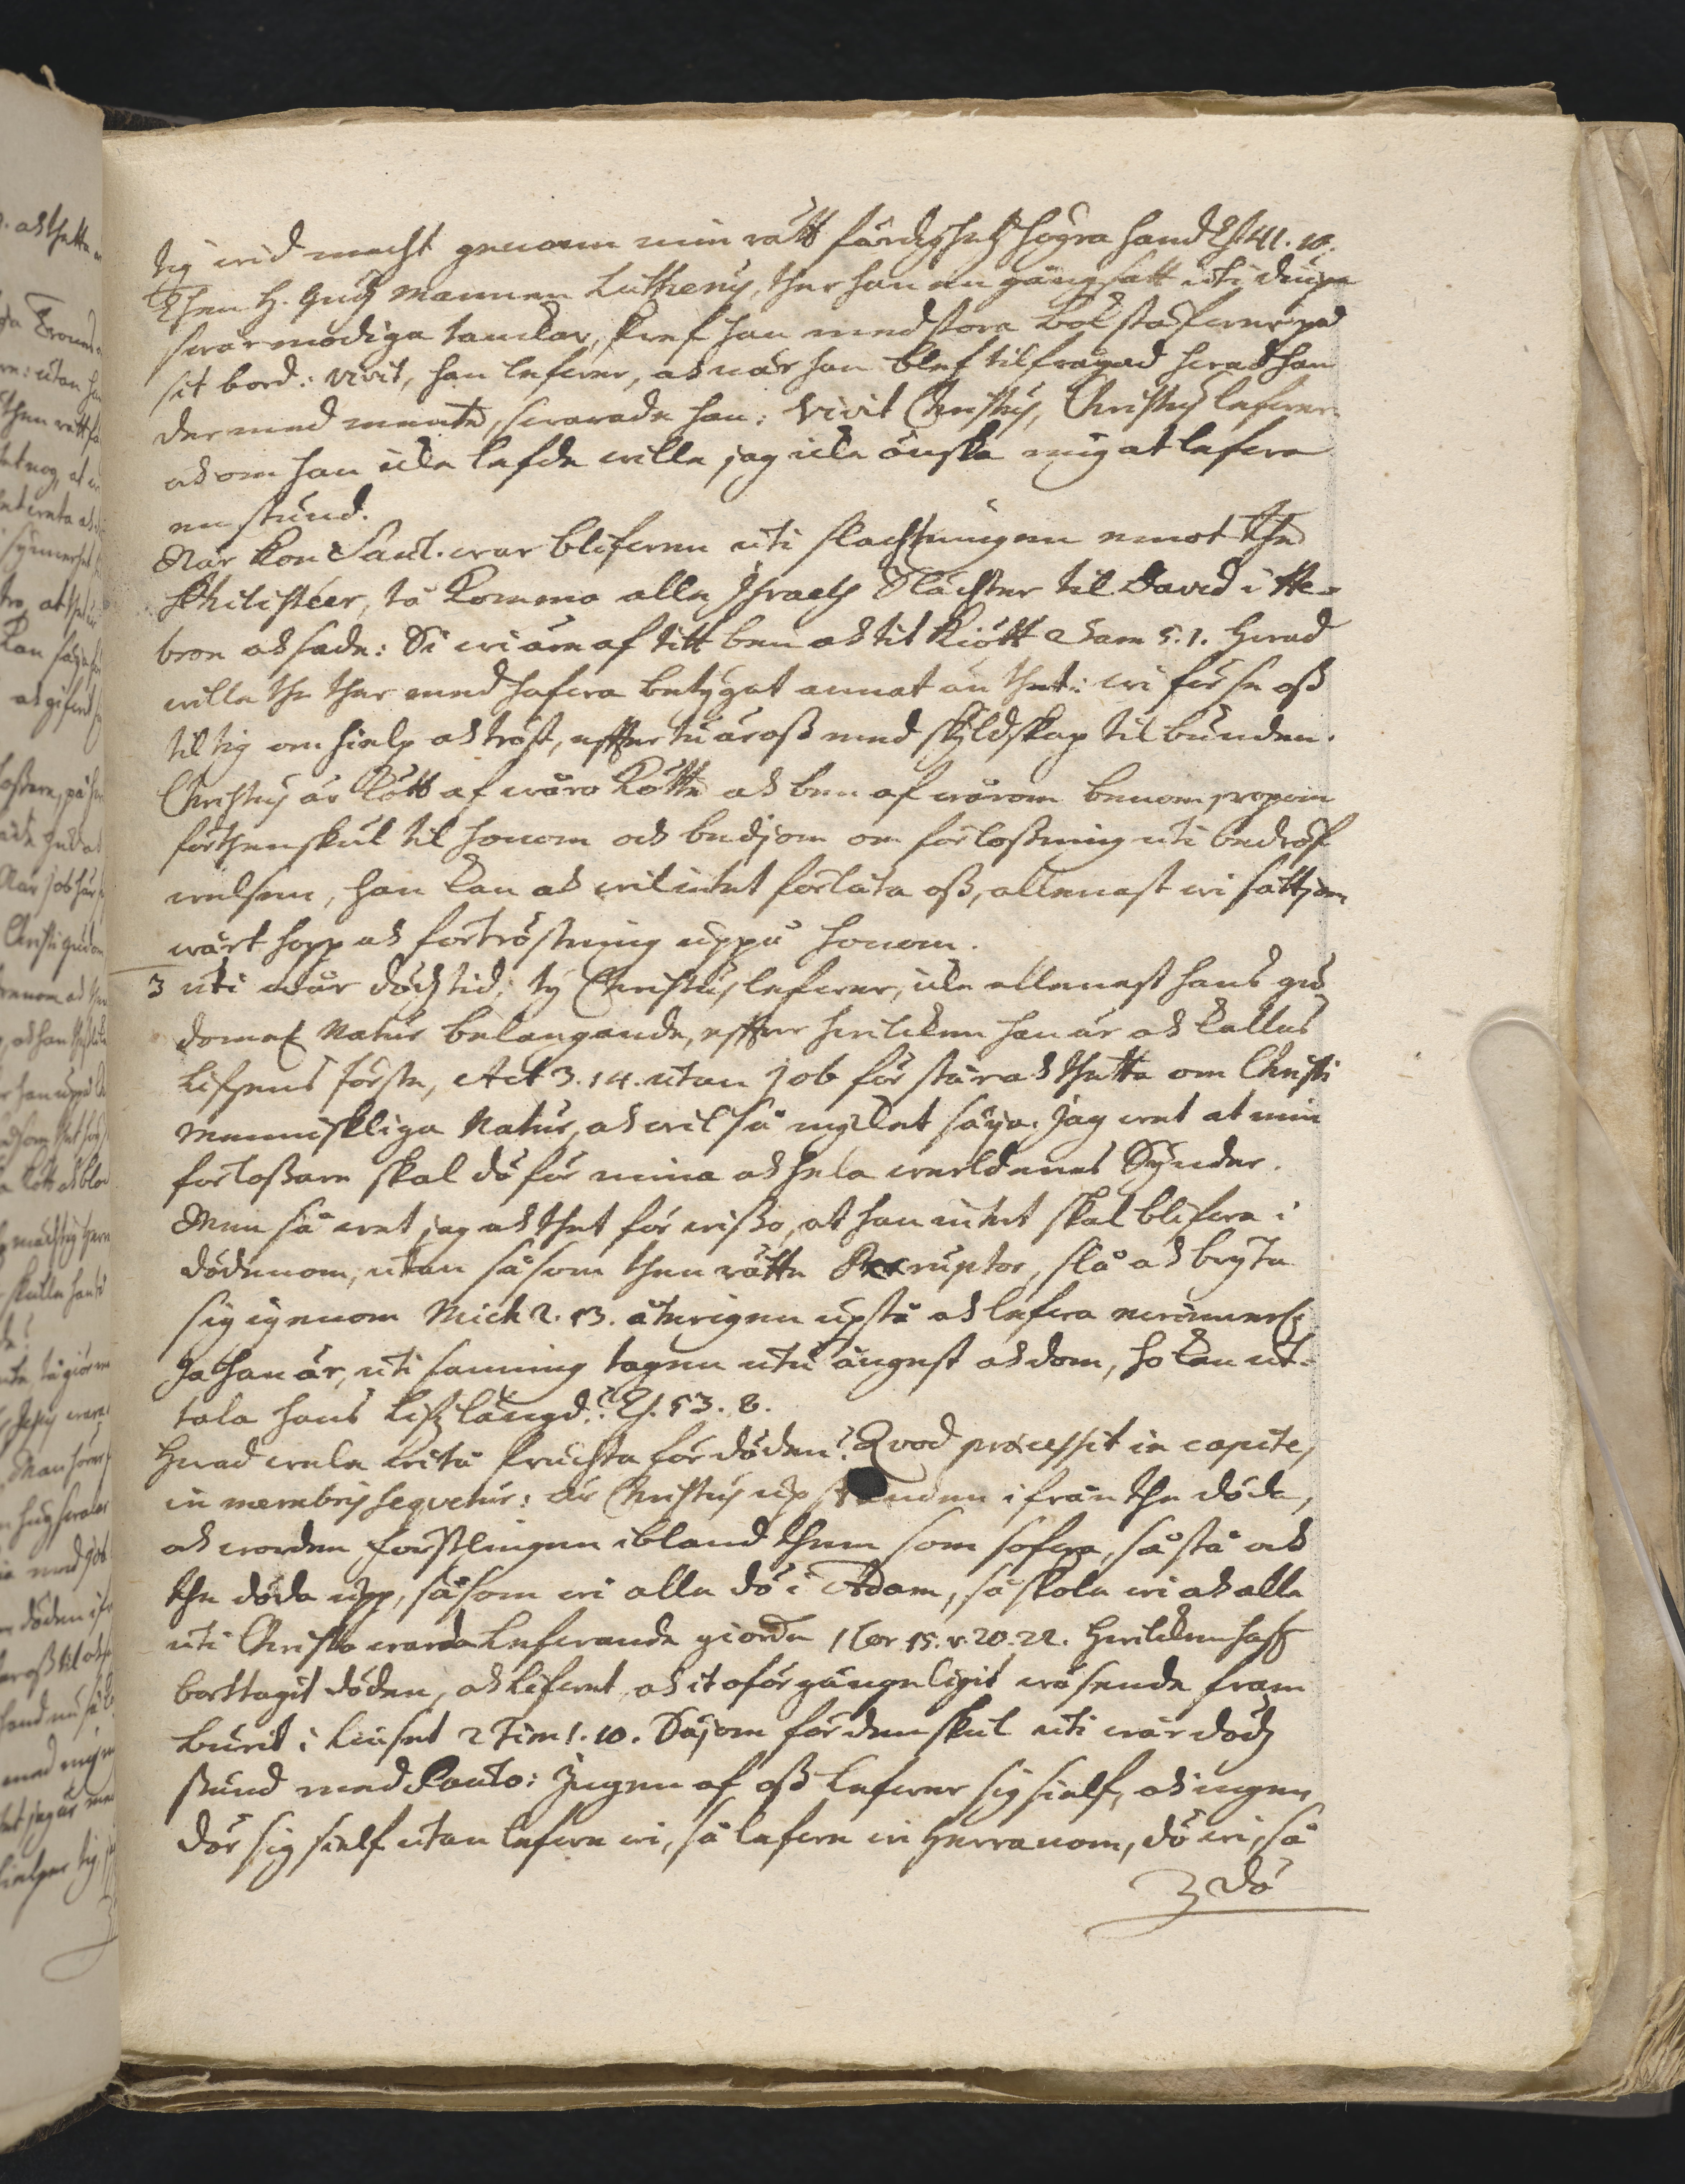 tig wid macht genom min rättfärdighetz högra hand Es. 41. 10.
Then H. Gudz Mannen Lutherus, ther han en gång satt uti diupa
swårmodiga tanckar, skref han med stora bokstäfwer på
sit bord: vivit, han lefwer, och när han blef tilfrågad hwad han
der med mente, swarade han: Vivit Christus, Christus lefwer
och om han icke lefde wille jag icke önska mig at lefwa
en stund.
När Kon Saul war blifwen uti slachtningen emot the
Philisteer, tå kommo alla Israels Slächter til David i He-
bron och sade: Si wi äre af titt ben och tit kiött Sam 5. 1. Hwad
wille the ther med hafwa betygat annat än thet: wi förse oss
til tig om hielp och tröst, effter tu är oss med skyldskap til bunden.
Christus är kött af wåro kötte och ben af wårom benom, ropom
förthenskul til honom och bedjom om förlossning uti bedröf
welsen, han kan och wil intet förlåta oss, allenast wi sättjom
wårt hopp och förtröstning uppå honom.
3 uti wår dödz tid; ty Christus lefwer, icke allenast hans gu
domes Natur belangande, effter hwilcken han är och kallas
Lifsens förste, Act 3. 14. utan Job förstår och thetta om Christi
Menniskliga Natur, och wil så mycket säya. Jag wet at min
förlossare skal dö för mina och hela werldenes Synder.
Men så wet jag och thet för wisso, at han intet skal blifwa i
dödenom, utan såsom then rätte ruptor, slå och bryta
sig igenom Mich 2. 13. åter igen upstå och lefwa ewinnerl:
Ja han är, uti sanning tagen utu ångest och dom, ho kan ut-
tala hans lifz längd? Es. 53. 8.
Hwad wele wi tå fruchta för döden? Qvod præcessit in capite,
in membris seqvetur: är Christus up ståånden ifrån the döda,
och worden förstlingen ibland them som sofwa, så stå och
the döda upp, såsom wi alle dö i Adam, så skole wi och alle
uti Christo warda lefwande giorde 1 Cor. 15. v. 20. 22. Hwilcken haff
borttagit döden, och lifwet och it oförgängeligit wäsende fram
burit i liuset 2 Tim 1. 10. Säjom för den skul uti wår dödz
stund med Paulo: Ingen af oss lefwer sig sielf, och ingen
dör sig sielf utan lefwe wi, så lefwe wi Herranom, dö wi, så
dö